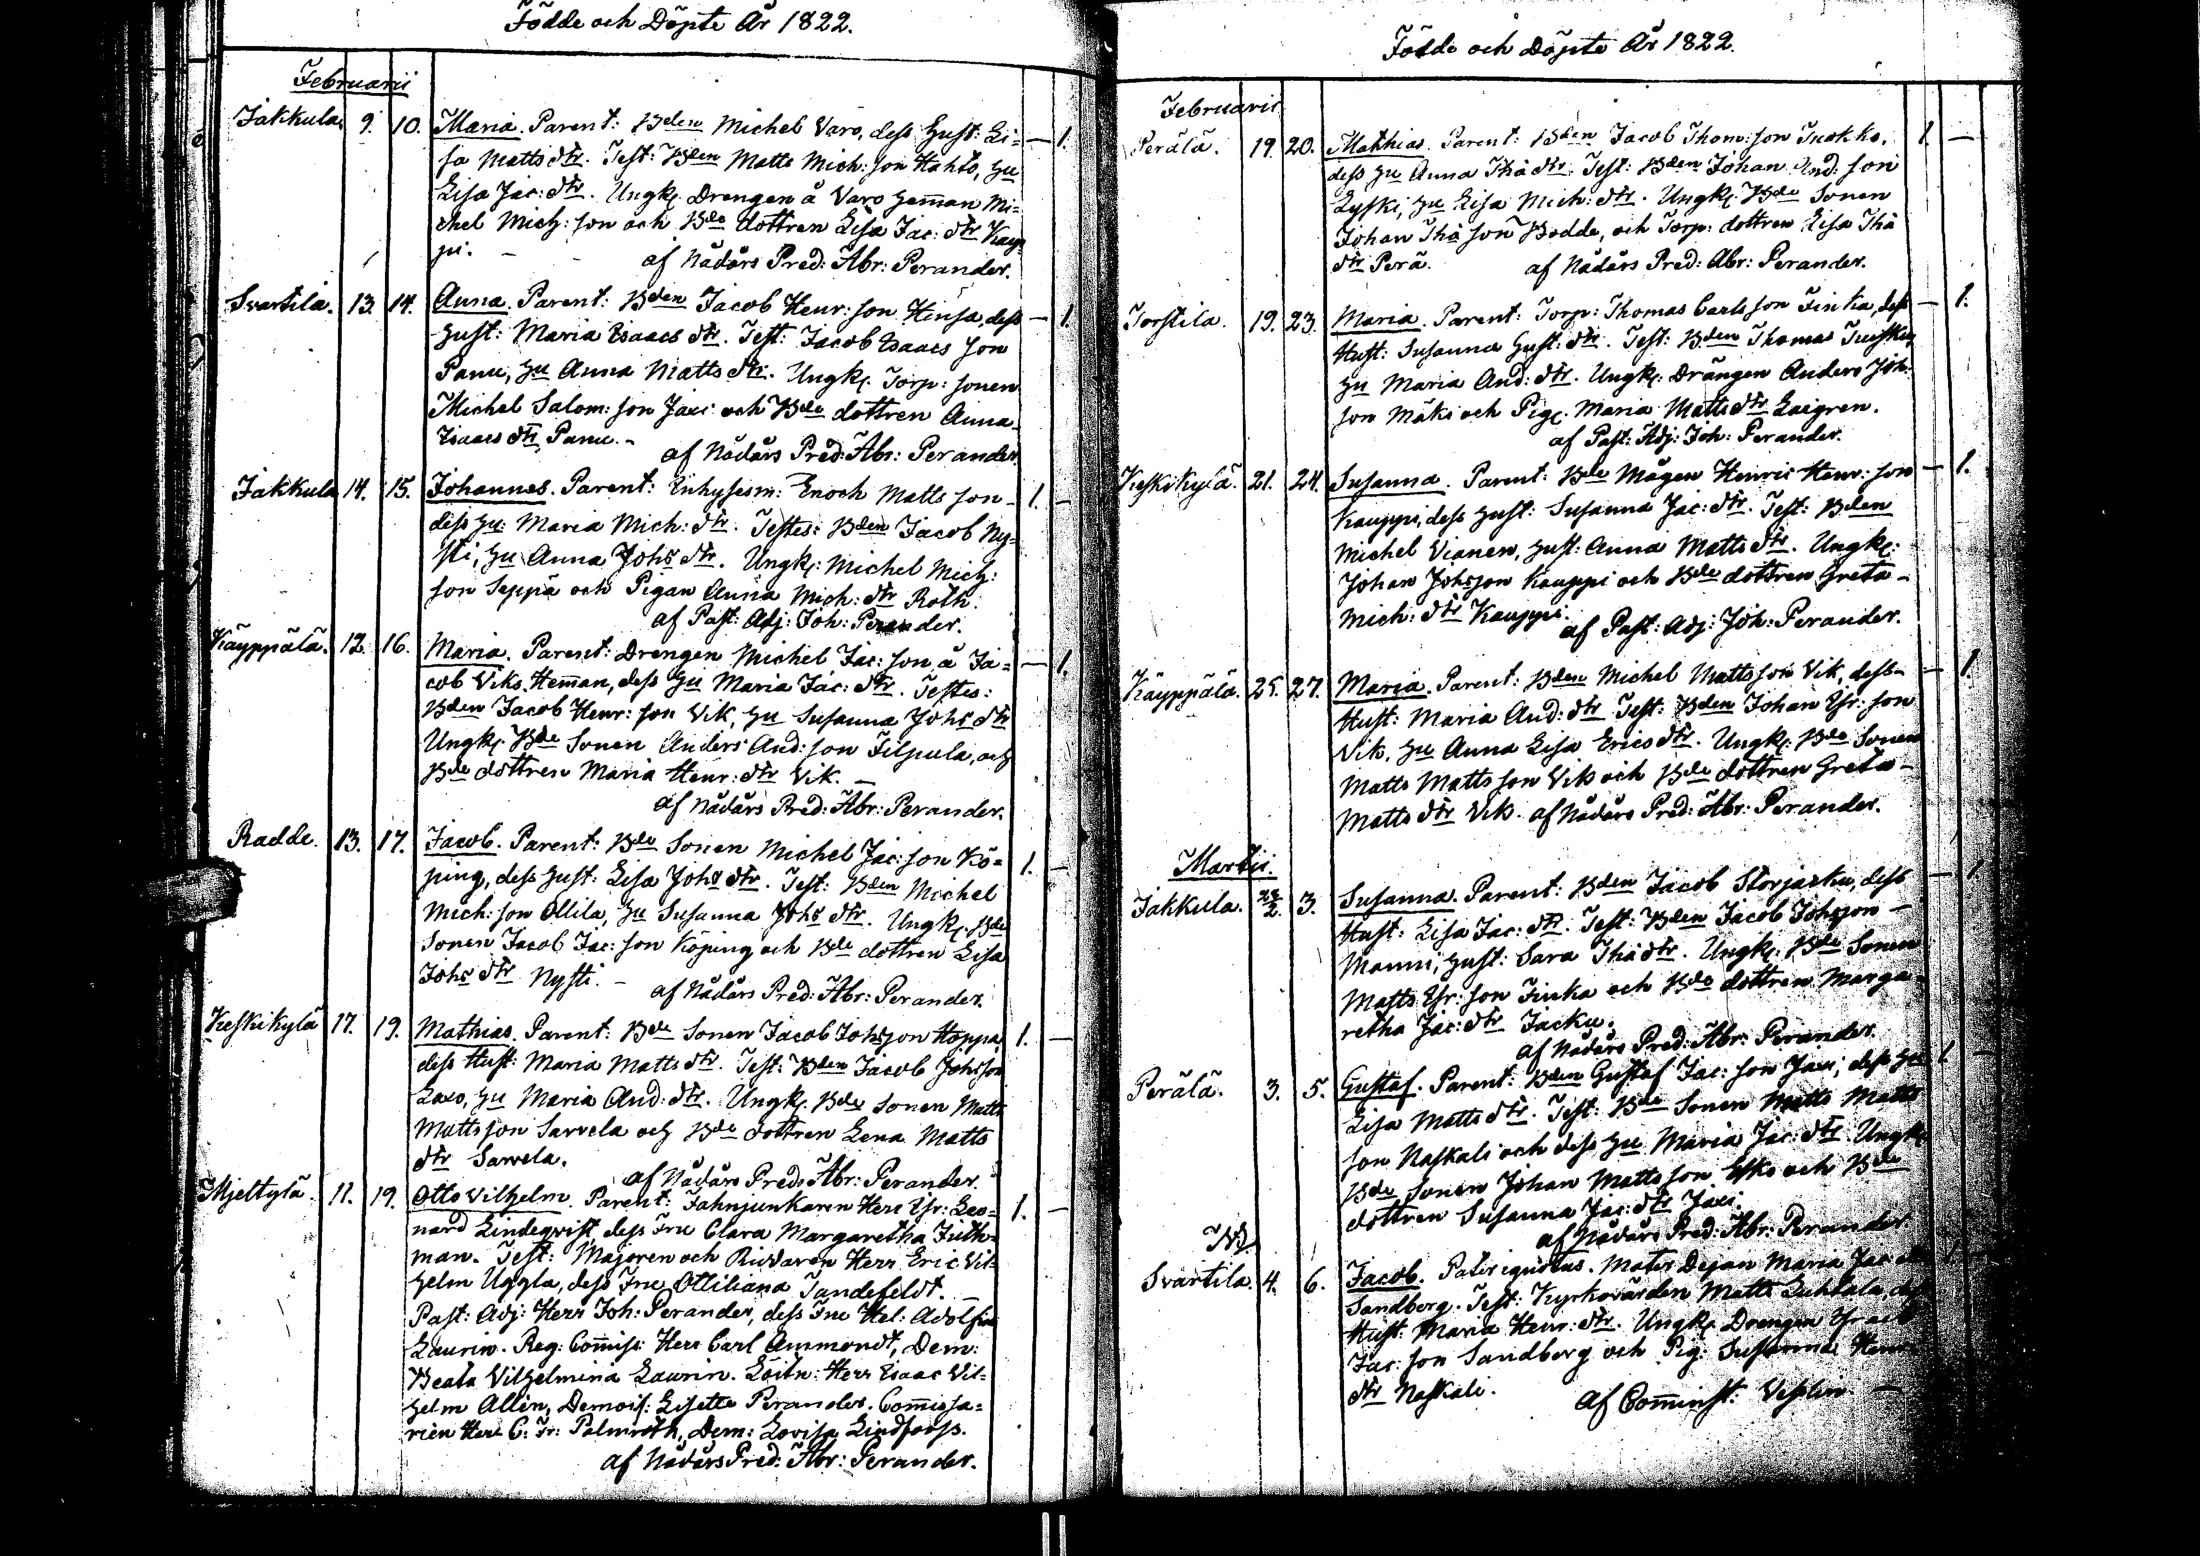 Födde och Döpte År 1822.
Februarii
Jakkula 9. 10. Maria. Parent: Bden Michel Varo, dess Hust: Li= — 1.
sa Matts dtr. Test: Bden Matts Mich: son Hahto, Hu
Lisa Jac: dtr. Ungk: Drengen å Varo Heman Mi=
chel Mich: son och Bde dottren Lisa Jac: dtr Kaup=
pi. — af Nådårs Pred: Abr: Perander.
Svartila. 13. 14. Anna. Parent: Bden Jacob Henr: son Hinsa, dess — 1.
Hust: Maria Isaacs dtr. Test: Jacob Isaacs son
Panu, Hu Anna Matts dtr. Ungk: Torp: sonen
Michel Salom: son Jaxi och Bde dottren Anna
Isaacs dtr Panu. — af Nådårs Pred: Abr: Perander.
Jakkula 14. 15. Johannes. Parent: Inhysesm: Enoch Matts son — 1. —
dess Hu: Maria Mich: dtr. Testes: Bden Jacob Ny=
sti, Hu Anna Johs dtr. Ungk: Michel Mich:
son Seppä och Pigan Anna Mich: dtr Roth.
af Past: Adj: Joh: Perander.
Käyppälä. 12. 16. Maria. Parent: Drengen Michel Jac: son å Ja= — 1.
cob Viks Heman, dess Hu Maria Jac: dtr. Testes:
Bden Jacob Henr: son Vik, Hu Susanna Johs dtr
Ungk: Bde Sonen Anders And: son Filpula, och
Bde dottren Maria Henr: dtr Vik. —
af Nådårs Pred: Abr: Perander.
Radde. 13. 17. Jacob. Parent: Bde Sonen Michel Jac: son Kö= 1. —
ping, dess Hust: Lisa Johs dtr. Test: Bden Michel
Mich: son Ollila, Hu Susanna Johs dtr. Ungk: Bde
Sonen Jacob Jac: son Köping och Bde dottren Lisa
Johs dtr Nysti. — af Nådårs Pred: Abr: Perander.
Keskikylä 17. 19. Mathias. Parent: Bde Sonen Jacob Johsson Hoppa, 1. —
dess Hust: Maria Matts dtr. Test: Bden Jacob Johsson
Laxo, Hu Maria And: dtr. Ungk: Bde Sonen Matts
Mattsson Sarvela och Bde dottren Lena Matts
dtr Sarvela. af Nådårs Pred: Abr: Perander.
Mjeltylä. 11. 19. Otto Vilhelm. Parent: Fahnjunkaren Herr Efr: Leo= 1. —
nard Lindeqvist, dess Fru Clara Margaretha Juth=
man. Test: Majoren och Riddaren Herr Eric Vil=
helm Uggla, dess Fru Ottiliana Tandefeldt. —
Past: Adj: Herr Joh: Perander, dess Fru Hel: Adolfina
Laurin. Reg: Comiss: Herr Carl Ammondt, Dem:
Beata Vilhelmina Laurin. Löitn: Herr Isaac Vil=
helm Allén, Demois: Lisette Perander. Comissa=
rien Herr C: Fr: Palmroth, Dem: Lovisa Lindforss.
af Nådårs Pred: Abr: Perander.
Födde och Döpte År 1822.
Februarii
Perälä. 19. 20. Mathias. Parent: Bden Jacob Thom: son Tuokko, 1. —
dess Hu Anna Thå dtr. Test: Bden Johan And: son
Lyski, Hu Lisa Mich: dtr. Ungk: Bde Sonen
Johan Thå son Bodde, och Torp: dottren Lisa Thå
dtr Perä. af Nådårs Pred: Abr: Perander.
Torstila. 19. 23. Maria. Parent: Torp: Thomas Carlsson Finka, dess — 1.
Hust: Susanna Gust: dtr. Test: Bden Thomas
Hu Maria And: dtr. Ungk: Drängen Anders Joh:
son Mäki och Pig: Maria Matts dtr
af Past: Adj: Joh: Perander.
Keskikylä. 21. 24. Susanna. Parent: Bde Mågen Henric Henr: son — 1.
Kauppi, dess Hust: Susanna Jac: dtr. Test: Bden
Michel Vianen, Hust: Anna Matts dtr. Ungk:
Johan Johsson Kauppi och Bde dottren Greta —
Mich: dtr Kauppi. af Past: Adj: Joh: Perander.
Käyppälä. 25. 27. Maria. Parent: Bden Michel Mattsson Vik, dess — 1.
Hust: Maria And: dtr Test: Bden Johan Efr: son
Vik, Hu Anna Lisa Erics dtr. Ungk: Bde Sonen
Matts Mattsson Vik och Bde dottren Greta —
Matts dtr Vik. af Nådårs Pred: Abr: Perander.
Martii.
Jakkula. 28/2. 3. Susanna. Parent: Bden Jacob Storjacku, dess — 1.
Hust: Lisa Jac: dtr. Test: Bden Jacob Johsson —
Manni, Hust: Sara Thå dtr. Ungk: Bde Sonen
Matts Efr: son Finka och Bde dottren Marga=
retha Jac: dtr Jacku.
af Nådårs Pred: Abr: Perander.
Perälä. 3. 5. Gustaf. Parent: Bden Gustaf Jac: son Jaxi, dess Hu 1. —
Lisa Matts dtr. Test: Bde Sonen Matts Matts
son Naskali och dess Hu Maria Jac: dtr Ungk:
Bde Sonen Johan Mattsson Esko och Bde
dottren Susanna Jac: dtr Jaxi.
af Nådårs Pred: Abr: Perander.
Svartila. 4. 6. Jacob. Pater ignotus. Mater Dejan Maria Jac: dtr
Sandberg. Test: Kyrkovärden Matts Luhtala, dess
Hust: Maria Henr: dtr. Ungk: Drengen Efraim
Jac: son Sandberg och Pig: Susanna Henr:
dtr Naskali. af Cominist: Vesslin —